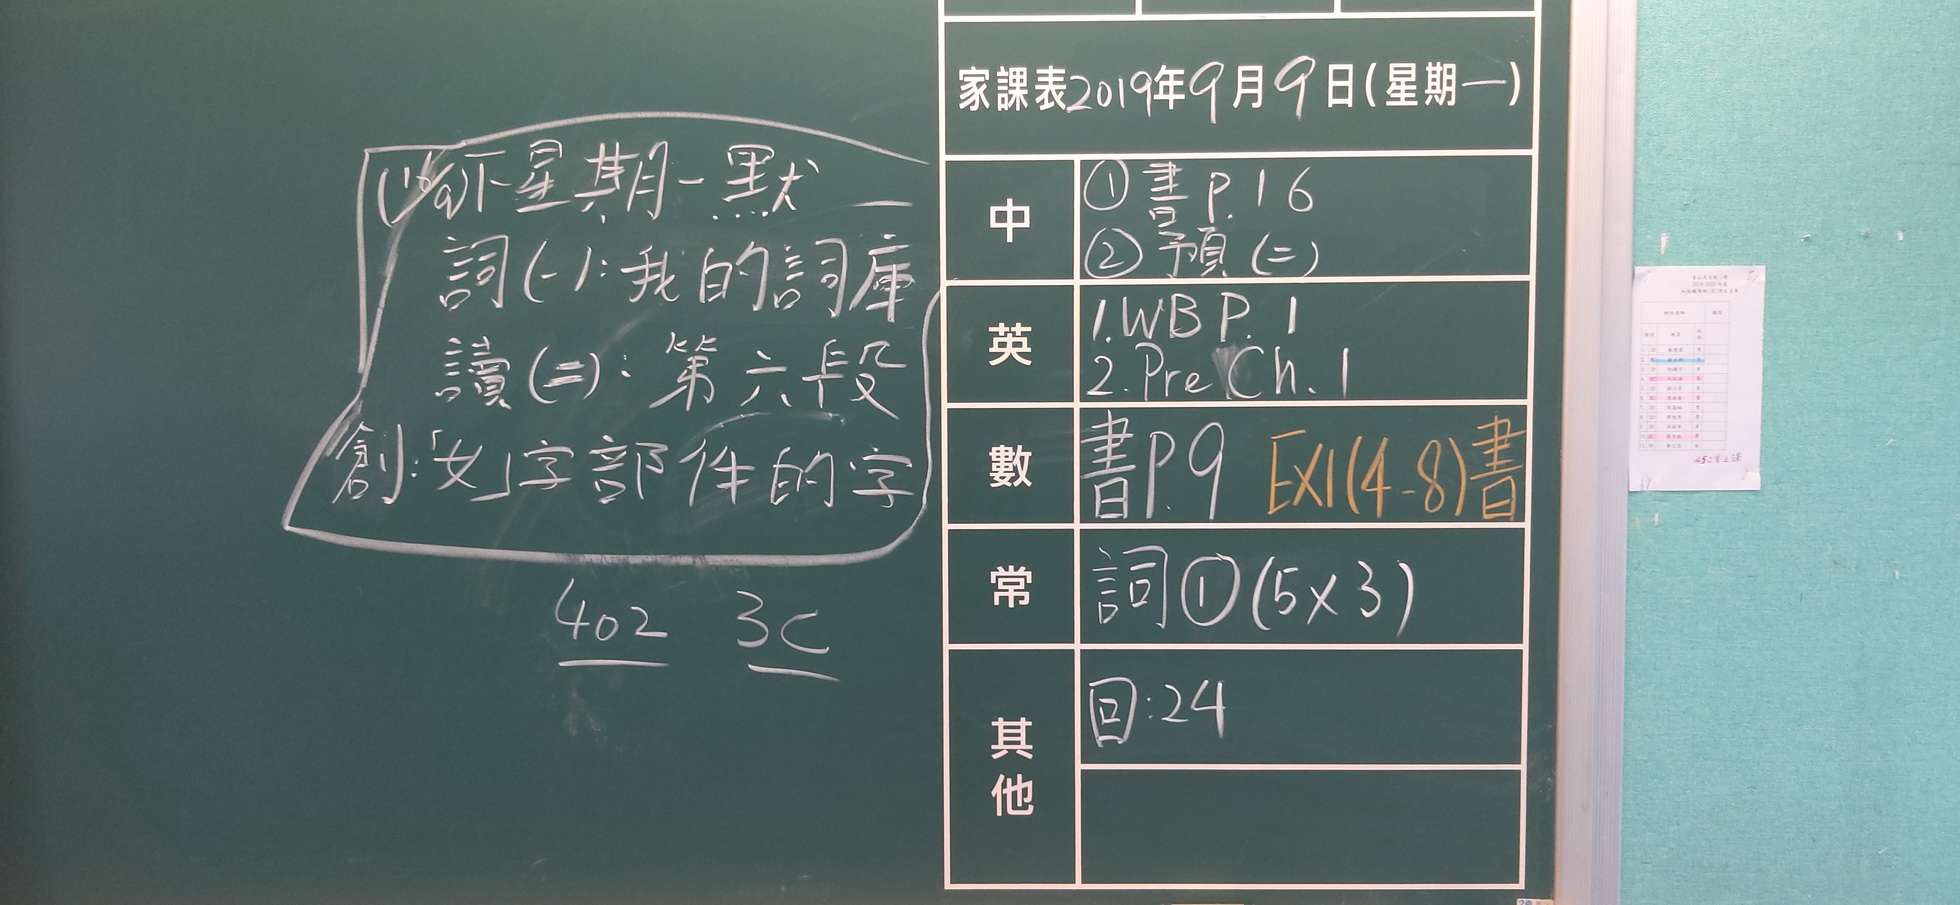 下星期一默
詞(一):我的詞庫
讀(二):第六段
創:「女」字部件的字
402 3C
家課表2019年9月9日(星期一)
中
①書P.16
②預(二)
英
1.WB P.1
2.Pre Ch.1
數
書P.9 EX1(4-8)書
常
詞①(5x3)
其他
回:24